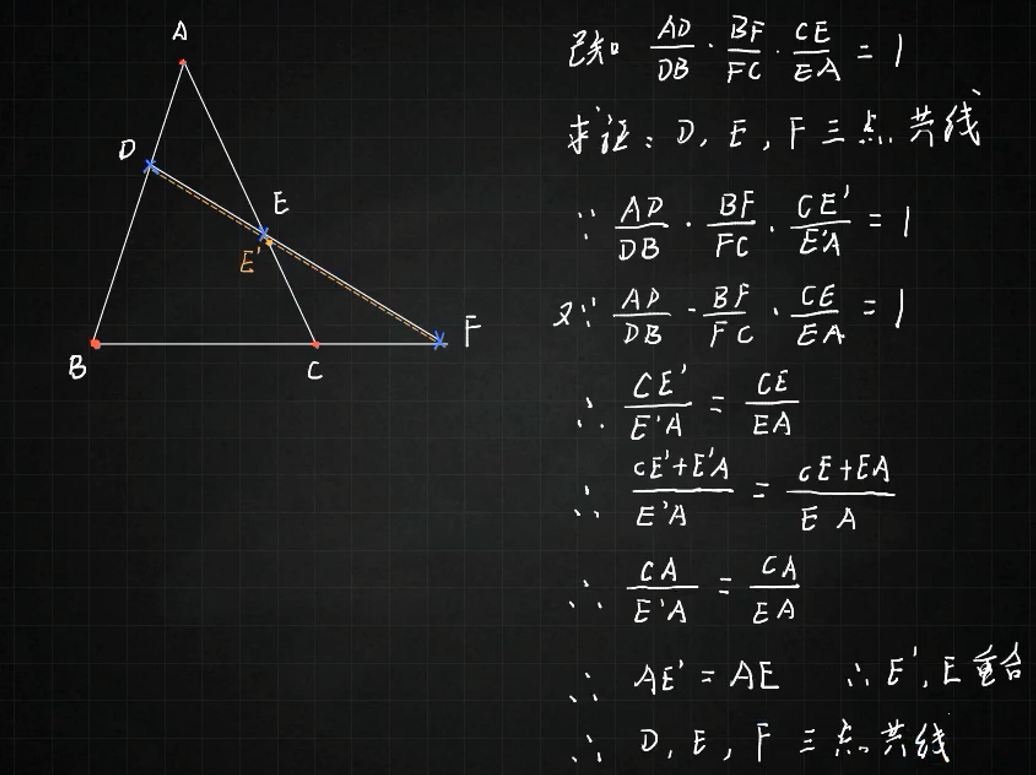 A
D
E
E'
B
C
F
已知 AD/DB · BF/FC · CE/EA = 1
求证: D, E, F 三点共线
∵ AD/DB · BF/FC · CE'/E'A = 1
又∵ AD/DB · BF/FC · CE/EA = 1
∴ CE'/E'A = CE/EA
∴ CE'+E'A/E'A = CE+EA/EA
∴ CA/E'A = CA/EA
∴ AE' = AE ∴ E', E 重合
∴ D, E, F 三点共线